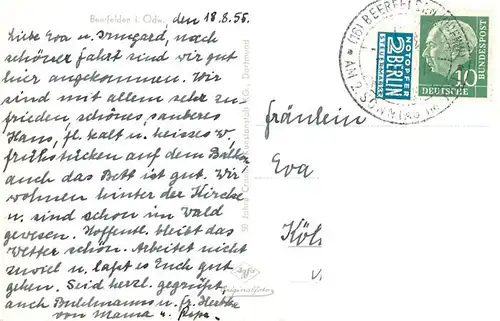 Beerfelden i. Odw., den 18.8.56.
Liebe Eva u. Irmgard, nach
schöner Fahrt sind wir gut
hier angekommen. Wir
sind mit allem sehr zu-
frieden, schönes, sauberes
Haus, fl. kalt u. heisses W,
frühstücken auf dem Balkon
auch das Bett ist gut. Wir
wohnen hinter der Kirche
u. sind schon im Wald
gewesen. Hoffentl. bleibt das
Wetter schön. Arbeitet nicht
zuviel u. laßt es Euch gut
gehen. Seid herzl. gegrüßt,
auch u. Fr.
von Mama u. Papa.
50 Jahre Kunstanstalt Co., Dortmund
Originalfoto
(16) BEERFELDEN
AM 2. SONNTAG IM
NOTOPFER
2 BERLIN
STEUERMARKE
10
DEUTSCHE
BUNDESPOST
Fräulein
Eva
Köl